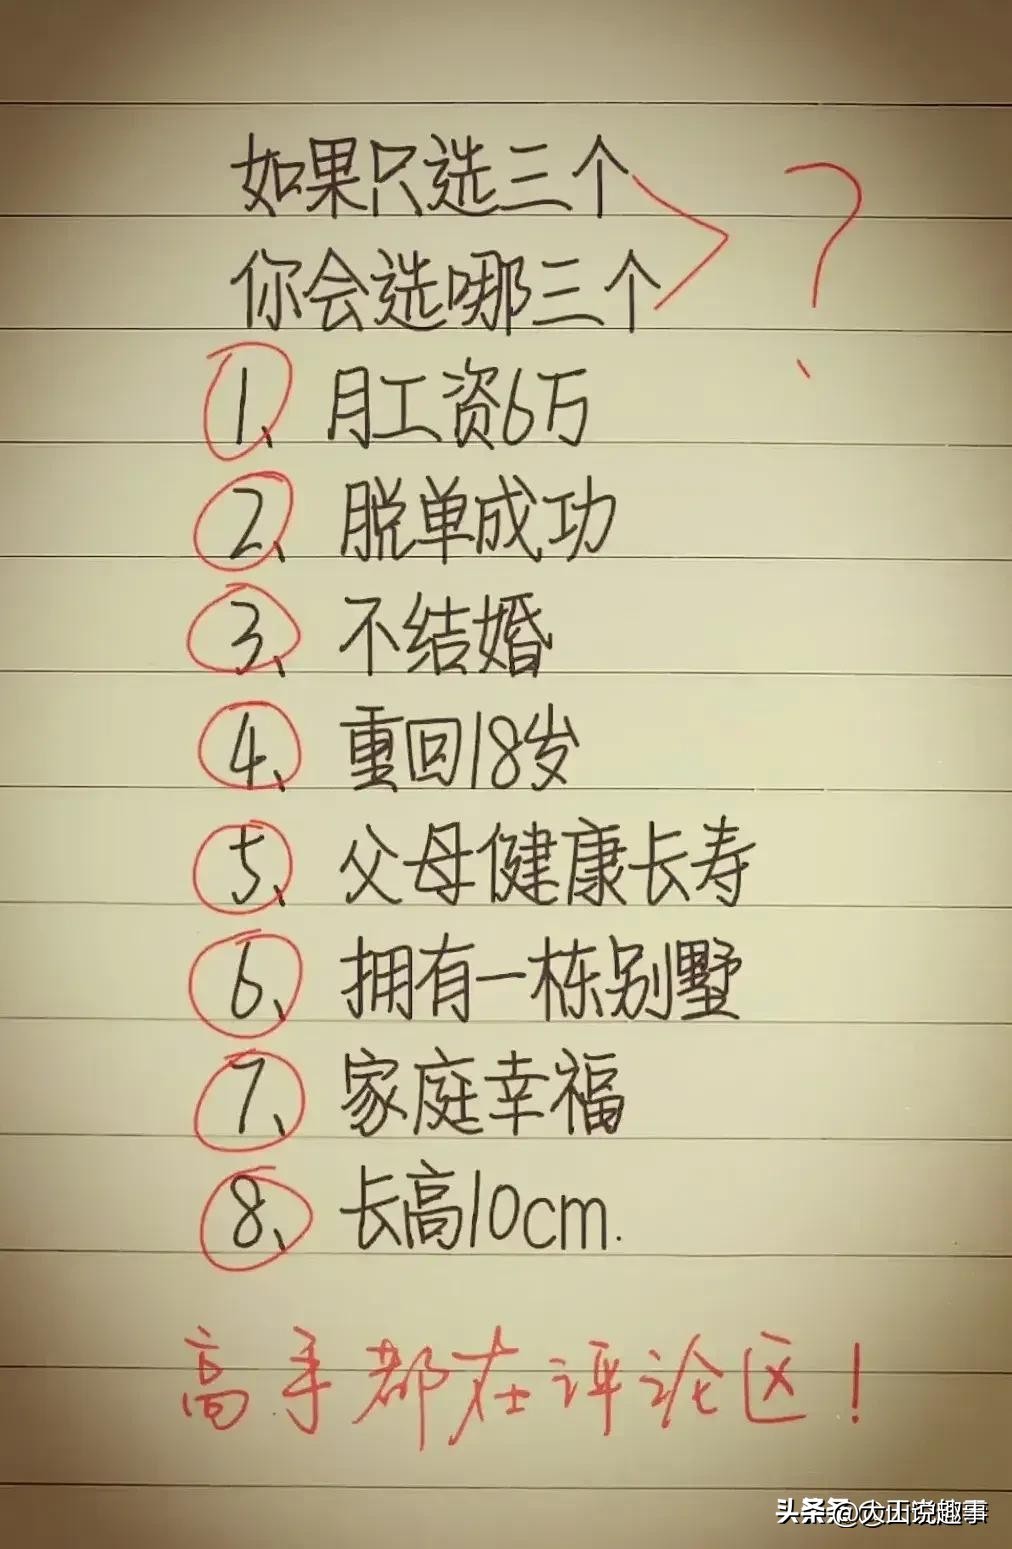 如果只选三个
你会选哪三个?
1、月工资6万
2、脱单成功
3、不结婚
4、重回18岁
5、父母健康长寿
6、拥有一栋别墅
7、家庭幸福
8、长高10cm.
高手都在评论区!
头条@大王说趣事